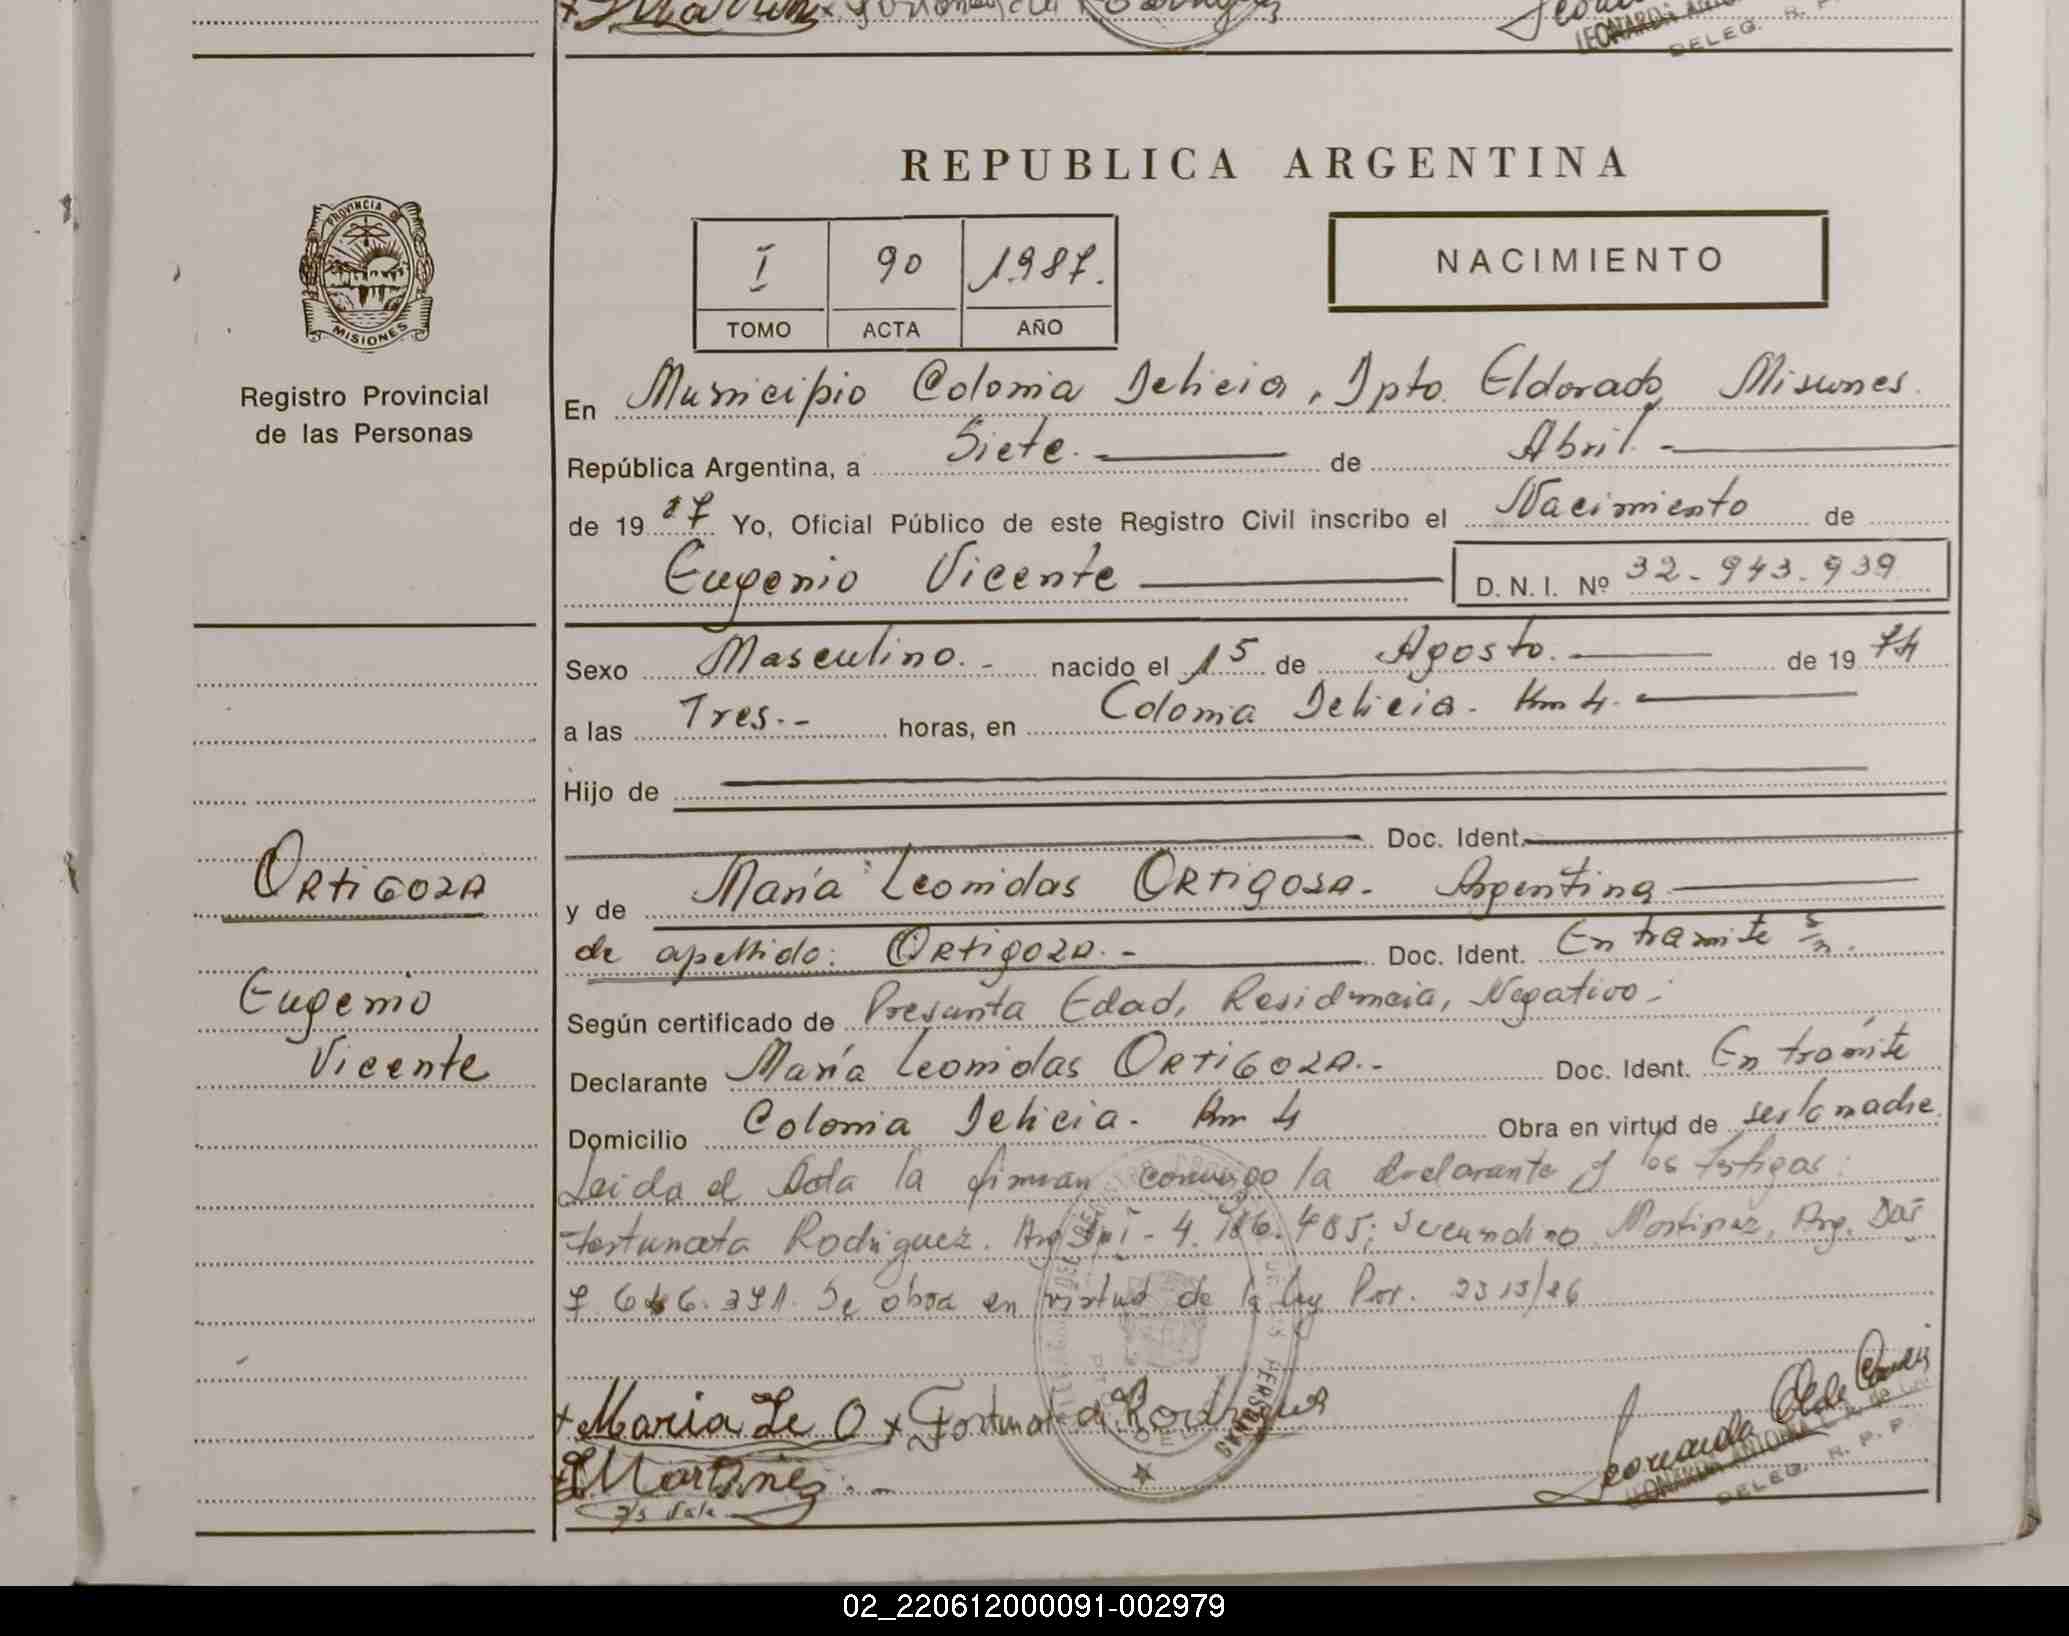 REPUBLICA ARGENTINA
PROVINCIA DE
MISIONES
Registro Provincial
de las Personas
I 90 1987.
TOMO ACTA AÑO
NACIMIENTO
En Municipio Colonia Delicia, Dpto. Eldorado, Misiones.
República Argentina, a Siete. de Abril.-
de 19 87 Yo, Oficial Público de este Registro Civil inscribo el Nacimiento de
Eugenio Vicente D. N. I. Nº 32-943.939
Sexo Masculino.- nacido el 15 de Agosto. de 19 74
a las Tres.- horas, en Colonia Delicia. Km 4.
Hijo de
Doc. Ident.
y de María Leonidas ORTIGOZA. Argentina
de apellido: ORTIGOZA.- Doc. Ident. En tramite s/n.
ORTIGOZA
Eugenio
Vicente
Según certificado de Presunta Edad, Residencia, Negativo.-
Declarante María Leonidas ORTIGOZA.- Doc. Ident. En trámite
Domicilio Colonia Delicia. Km 4 Obra en virtud de ser la madre.
Leida el Acta la firman conmigo la declarante y los testigos:
Fortunata Rodriguez. Arg. 4.186.485; Secundino Martinez, Arg.
Se obra en virtud de la ley Por. 2313/86
x Maria Le O x Fortunata Rodriguez
Martinez.-
DELEG. R. P. P.
02_220612000091-002979